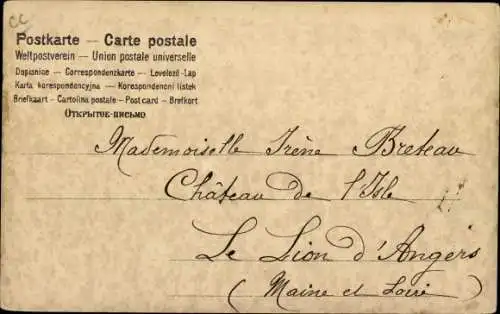 CC
Postkarte — Carte postale
Weltpostverein — Union postale universelle
Dopisnice — Correspondenzkarte — Levelező-Lap
Karta korespondencyjna — Korespondencni listek
Briefkaart - Cartolina postale - Post card - Brefkort
Открытое-письмо
Mademoiselle Irène Breteau
Château de l'Isle
Le Lion d'Angers
(Maine et Loire)